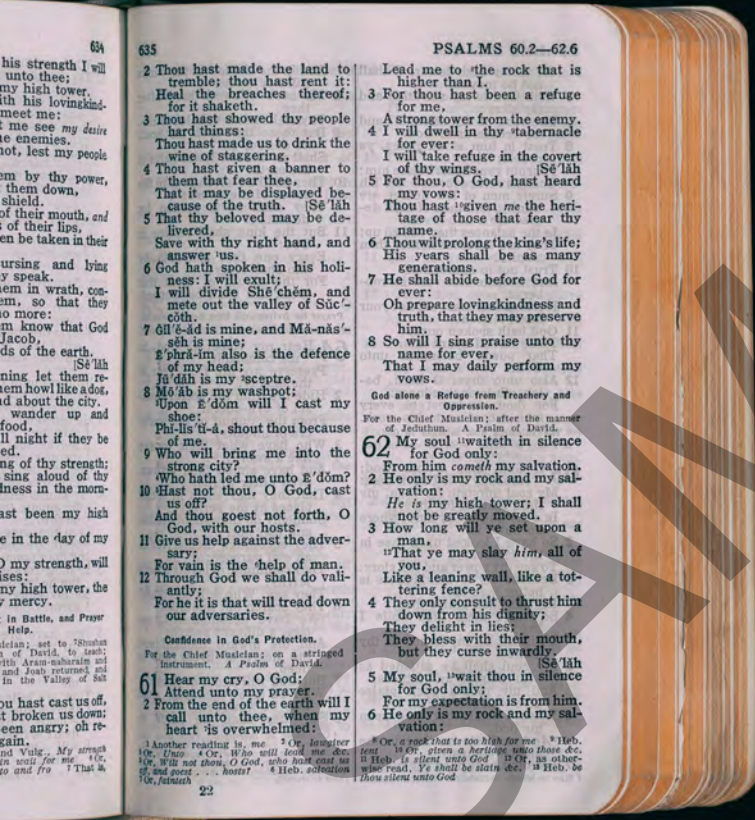 634
his strength I will
unto thee;
my high tower.
ith his lovingkind-
meet me:
t me see my desire
e enemies.
not, lest my people
em by thy power,
them down,
shield.
of their mouth, and
s of their lips,
en be taken in their
ursing and lying
y speak.
em in wrath, con-
em, so that they
no more:
em know that God
Jacob,
ds of the earth.
[Sē´läh
ning let them re-
hem howl like a dog,
nd about the city.
wander up and
food,
ll night if they be
ed.
ng of thy strength;
sing aloud of thy
dness in the morn-
ast been my high
e in the day of my
O my strength, will
ises:
ny high tower, the
y mercy.
in Battle, and Prayer
Help.
sician; set to Shushan
of David, to teach;
with Aram-naharaim and
and Joab returned, and
in the Valley of Salt
ou hast cast us off,
t broken us down;
een angry; oh re-
gain.
nd Vulg., My strength
in wait for me Or,
to and fro 7 That is,
635
2 Thou hast made the land to
tremble; thou hast rent it:
Heal the breaches thereof;
for it shaketh.
3 Thou hast showed thy people
hard things:
Thou hast made us to drink the
wine of staggering.
4 Thou hast given a banner to
them that fear thee,
That it may be displayed be-
cause of the truth. [Sē´läh
5 That thy beloved may be de-
livered,
Save with thy right hand, and
answer ¹us.
6 God hath spoken in his holi-
ness: I will exult;
I will divide Shē´chĕm, and
mete out the valley of Sŭc´-
cŏth.
7 Gĭl´ĕ-ăd is mine, and Mă-năs´-
sĕh is mine;
Ē´phrä-ĭm also is the defence
of my head;
Jū´dăh is my ²sceptre.
8 Mō´ăb is my washpot;
³Upon Ē´dŏm will I cast my
shoe:
Phĭ-lĭs´tĭ-ȧ, shout thou because
of me.
9 Who will bring me into the
strong city?
⁴Who hath led me unto Ē´dŏm?
10 ⁵Hast not thou, O God, cast
us off?
And thou goest not forth, O
God, with our hosts.
11 Give us help against the adver-
sary;
For vain is the ⁶help of man.
12 Through God we shall do vali-
antly;
For he it is that will tread down
our adversaries.
Confidence in God's Protection.
For the Chief Musician; on a stringed
instrument. A Psalm of David.
61 Hear my cry, O God;
Attend unto my prayer.
2 From the end of the earth will I
call unto thee, when my
heart ⁷is overwhelmed:
1 Another reading is, me 2 Or, lawgiver
3 Or, Unto 4 Or, Who will lead me &c.
5 Or, Wilt not thou, O God, who hast cast us
off, and goest . . . hosts? 6 Heb. salvation
7 Or, fainteth
22
PSALMS 60.2—62.6
Lead me to ⁸the rock that is
higher than I.
3 For thou hast been a refuge
for me,
A strong tower from the enemy.
4 I will dwell in thy ⁹tabernacle
for ever:
I will take refuge in the covert
of thy wings. [Sē´läh
5 For thou, O God, hast heard
my vows:
Thou hast ¹⁰given me the heri-
tage of those that fear thy
name.
6 Thou wilt prolong the king's life;
His years shall be as many
generations.
7 He shall abide before God for
ever:
Oh prepare lovingkindness and
truth, that they may preserve
him.
8 So will I sing praise unto thy
name for ever,
That I may daily perform my
vows.
God alone a Refuge from Treachery and
Oppression.
For the Chief Musician; after the manner
of Jeduthun. A Psalm of David.
62 My soul ¹¹waiteth in silence
for God only:
From him cometh my salvation.
2 He only is my rock and my sal-
vation:
He is my high tower; I shall
not be greatly moved.
3 How long will ye set upon a
man,
¹²That ye may slay him, all of
you,
Like a leaning wall, like a tot-
tering fence?
4 They only consult to thrust him
down from his dignity;
They delight in lies;
They bless with their mouth,
but they curse inwardly.
[Sē´läh
5 My soul, ¹³wait thou in silence
for God only;
For my expectation is from him.
6 He only is my rock and my sal-
vation:
8 Or, a rock that is too high for me 9 Heb.
tent 10 Or, given a heritage unto those &c.
11 Heb. is silent unto God 12 Or, as other-
wise read, Ye shall be slain &c. 13 Heb. be
thou silent unto God